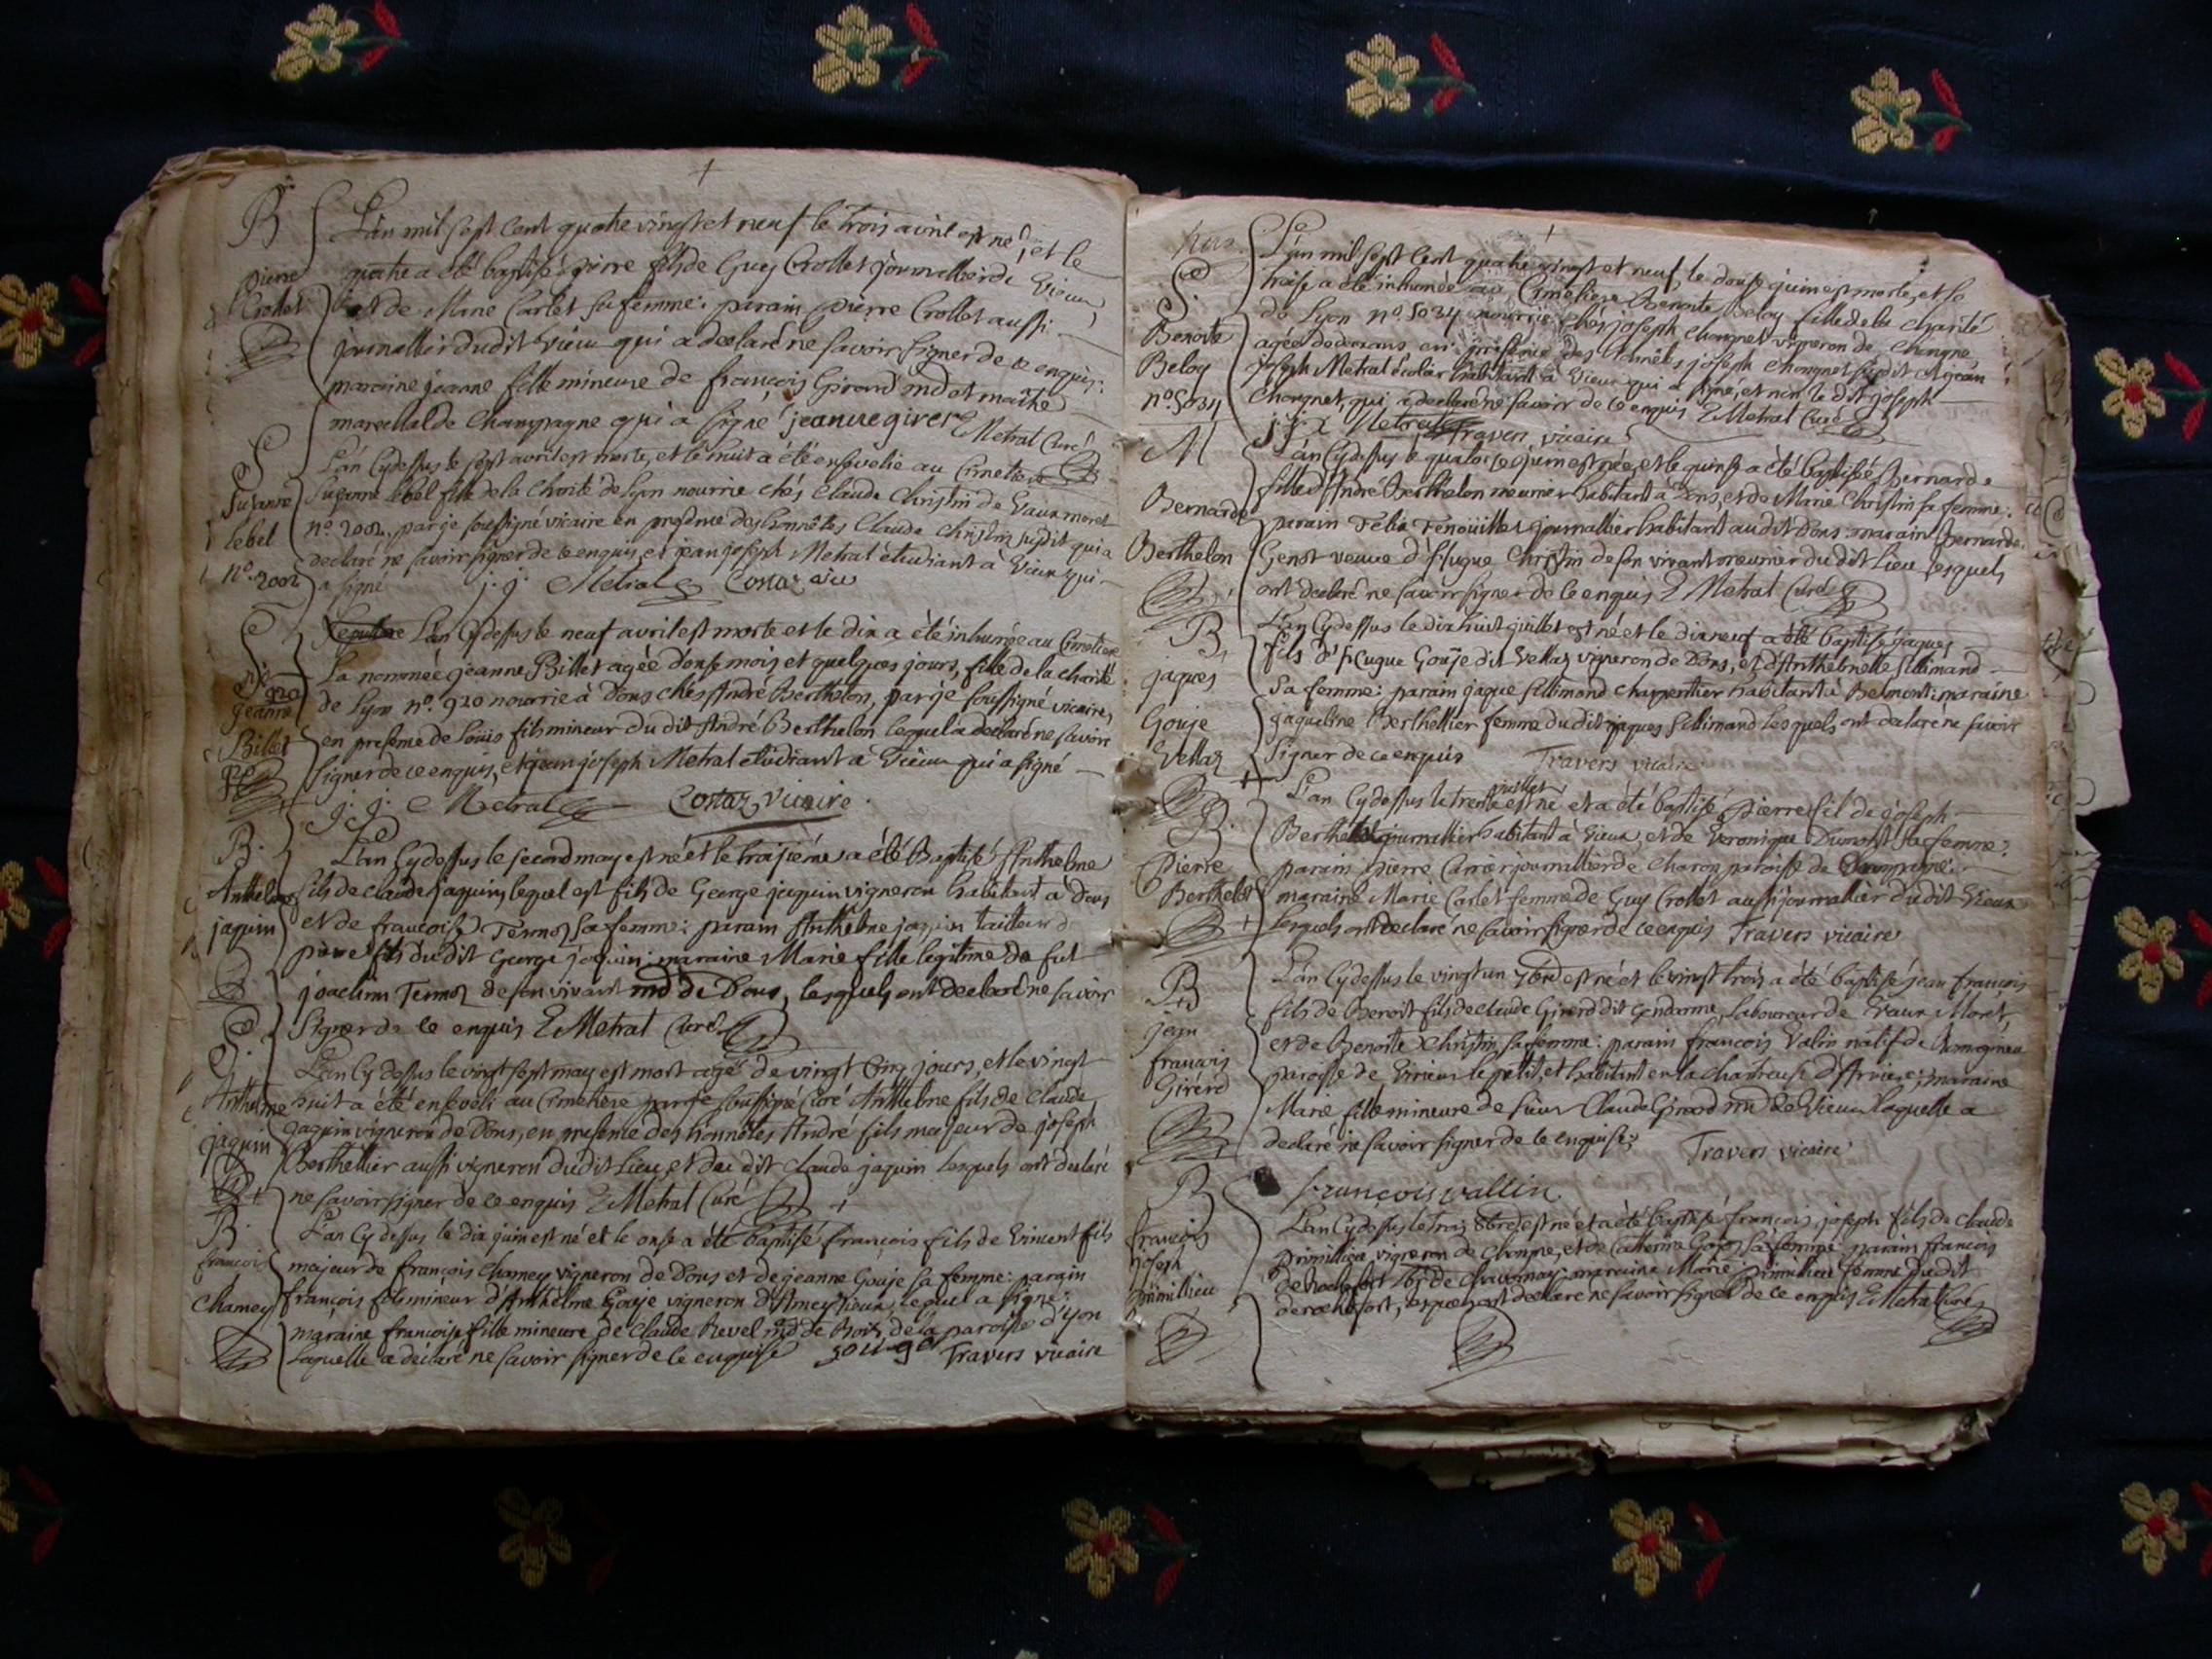 B
Pierre
Crollet
L'an mil sept cent quatre vingt et neuf le trois avril est né, et le
quatre a été baptisé pierre fils de Guy Crollet journallier de Vieux,
et de Marie Carlet sa femme: parain pierre Crollet aussi
journallier dudit vieu qui a declaré ne savoir signer de ce enquis:
maraine jeanne fille mineure de françois Girard md et maitre
marechal de Champagne qui a signé jeanne girer Metral Curé
S
Susanne
lebel
n°. 2002
L'an Cydessus le sept avril est morte, et le huit a été ensevelie au Cimetiere
Susanne lebel fille de la Charité de Lyon nourrie chés Claude Christin de Vaux moret
n°. 2002, par je soussigné vicaire en presence des honnêtes Claude Christin susdit qui a
declaré ne savoir signer de ce enquis, et jean joseph Metral etudiant à Vieux qui
a signé j. j. Metral Costaz vic
S
n°. 920
jeanne
Billet
L'an Cydessus le neuf avril est morte et le dix a été inhumée au Cimetiere
La nommée jeanne Billet agée d'onse mois et quelques jours, fille de la charité
de Lyon n°. 920 nourrie à Dons chés André Berthelon, par je soussigné vicaire,
en presence de Louis fils mineur du dit André Berthelon lequel a declaré ne savoir
signer de ce enquis, et jean joseph Metral etudiant à Vieux qui a signé
j. j. Metral Costaz vicaire.
B.
Anthelme
jaquin
L'an Cydessus le second may est né et le troisième a été Baptisé Anthelme
fils de claude jaquin, lequel est fils de George jaquin vigneron habitant a Dons
et de françoise Termoz sa femme: parain Anthelme jaquin tailleur
fils du dit George jaquin: maraine Marie fille legitime de fut
joachim Termoz de son vivant md de Dons, lesquels ont declaré ne savoir
Signer de ce enquis Metral Curé
S.
Anthelme
jaquin
L'an Cydessus le vingt sept may est mort agé de vingt cinq jours, et le vingt
huit a été enseveli au Cimetiere par je soussigné Curé Anthelme fils de Claude
jaquin vigneron de Dons, en presence des honnêtes André fils majeur de joseph
Berthellier aussi vigneron dudit Lieu, et du dit Claude jaquin lesquels ont declaré
ne savoir signer de ce enquis Metral Curé
B.
françois
Chamey
L'an Cydessus le dix juin est né et le onse a été baptisé françois fils de Vincent fils
majeur de françois Chamey vigneron de Dons et de jeanne Gouje sa femme: parain
françois fils mineur d'Anthelme Gouje vigneron d'Ameyzieux, lequel a signé:
maraine françoise fille mineure de Claude Revel md de Bois, de la paroisse d'yon
Laquelle a declaré ne savoir signer de ce enquise Travers vicaire
S.
Benoite
Beloy
n°. 5034
L'an mil sept cent quatre vingt et neuf, le douse juin est morte, et le
treise a été inhumée au Cimetiere Benoite Beloy fille de la charité
de Lyon n°. 5034 nourrie chés joseph Chongnet vigneron de Chongne,
agée de deux ans en presence des honnêtes joseph Chongnet susdit et jean
joseph Metral écolier habitant à Vieux qui a signé, et non le dit joseph
Chongnet, qui a declaré ne savoir de ce enquis Metral Curé
j. j. Metral Travers vicaire
Bernarde
Berthelon
L'an Cydessus le quatorse juin est née, et le quinse a été baptisée Bernarde
fille d'André Berthelon meunier habitant à Dons, et de Marie Christin sa femme:
parain Félix Fenoüillet journallier habitant audit Dons: maraine Bernarde
Genot veuve d'Hugue Christin de son vivant meunier dudit Lieu lesquels
ont declaré ne savoir signer de ce enquis Metral Curé
B
jaques
Gouje
Vellaz
L'an Cydessus le dix huit juillet est né et le dix neuf a été baptisé jaques
fils d'Hugue Gouje dit Vellaz vigneron de Dons, et d'Anthelmette Sillimand
sa femme: parain jaque Sillimand charpentier habitant à Belmont: maraine
jaqueline Berthellier femme du dit jaques Sillimand lesquels ont declaré ne savoir
signer de ce enquis Travers vicaire
B.
Pierre
Berthelet
L'an Cydessus le trente juillet est né et a été baptisé pierre fils de joseph
Berthelet journallier habitant à Vieux, et de Veronique Dumont sa femme:
parain pierre Carrier journallier de Charon paroisse de Champagne:
maraine Marie Carlet femme de Guy Crollet aussi journallier dudit Vieux
lesquels ont declaré ne savoir signer de ce enquis Travers vicaire
B
jean
françois
Girerd
L'an Cydessus le vingt un 7bre est né et le vingt trois a été baptisé jean françois
fils de Benoit fils de claude Girerd dit Gendarme, Laboureur de Vaux Moret,
et de Benoite Christin sa femme: parain françois Valin natif de
paroisse de Virieux le petit, et habitant en la chartreuse d'Arvieres: maraine
Marie fille mineure de sieur Claude Girard md de Vieux laquelle a
declaré ne savoir signer de ce enquise: Travers vicaire
françois vallin
B
françois
joseph
primillieu
L'an Cydessus le trois 8bre est né et a été baptisé françois joseph fils de claude
Primillieu vigneron de Chongne, et de Catherine Gojoz sa femme: parain françois
de Rochefort de Chavornay: maraine Marie Primillieu femme dudit
de rochefort, lesquels ont declaré ne savoir signer de ce enquis Metral Curé